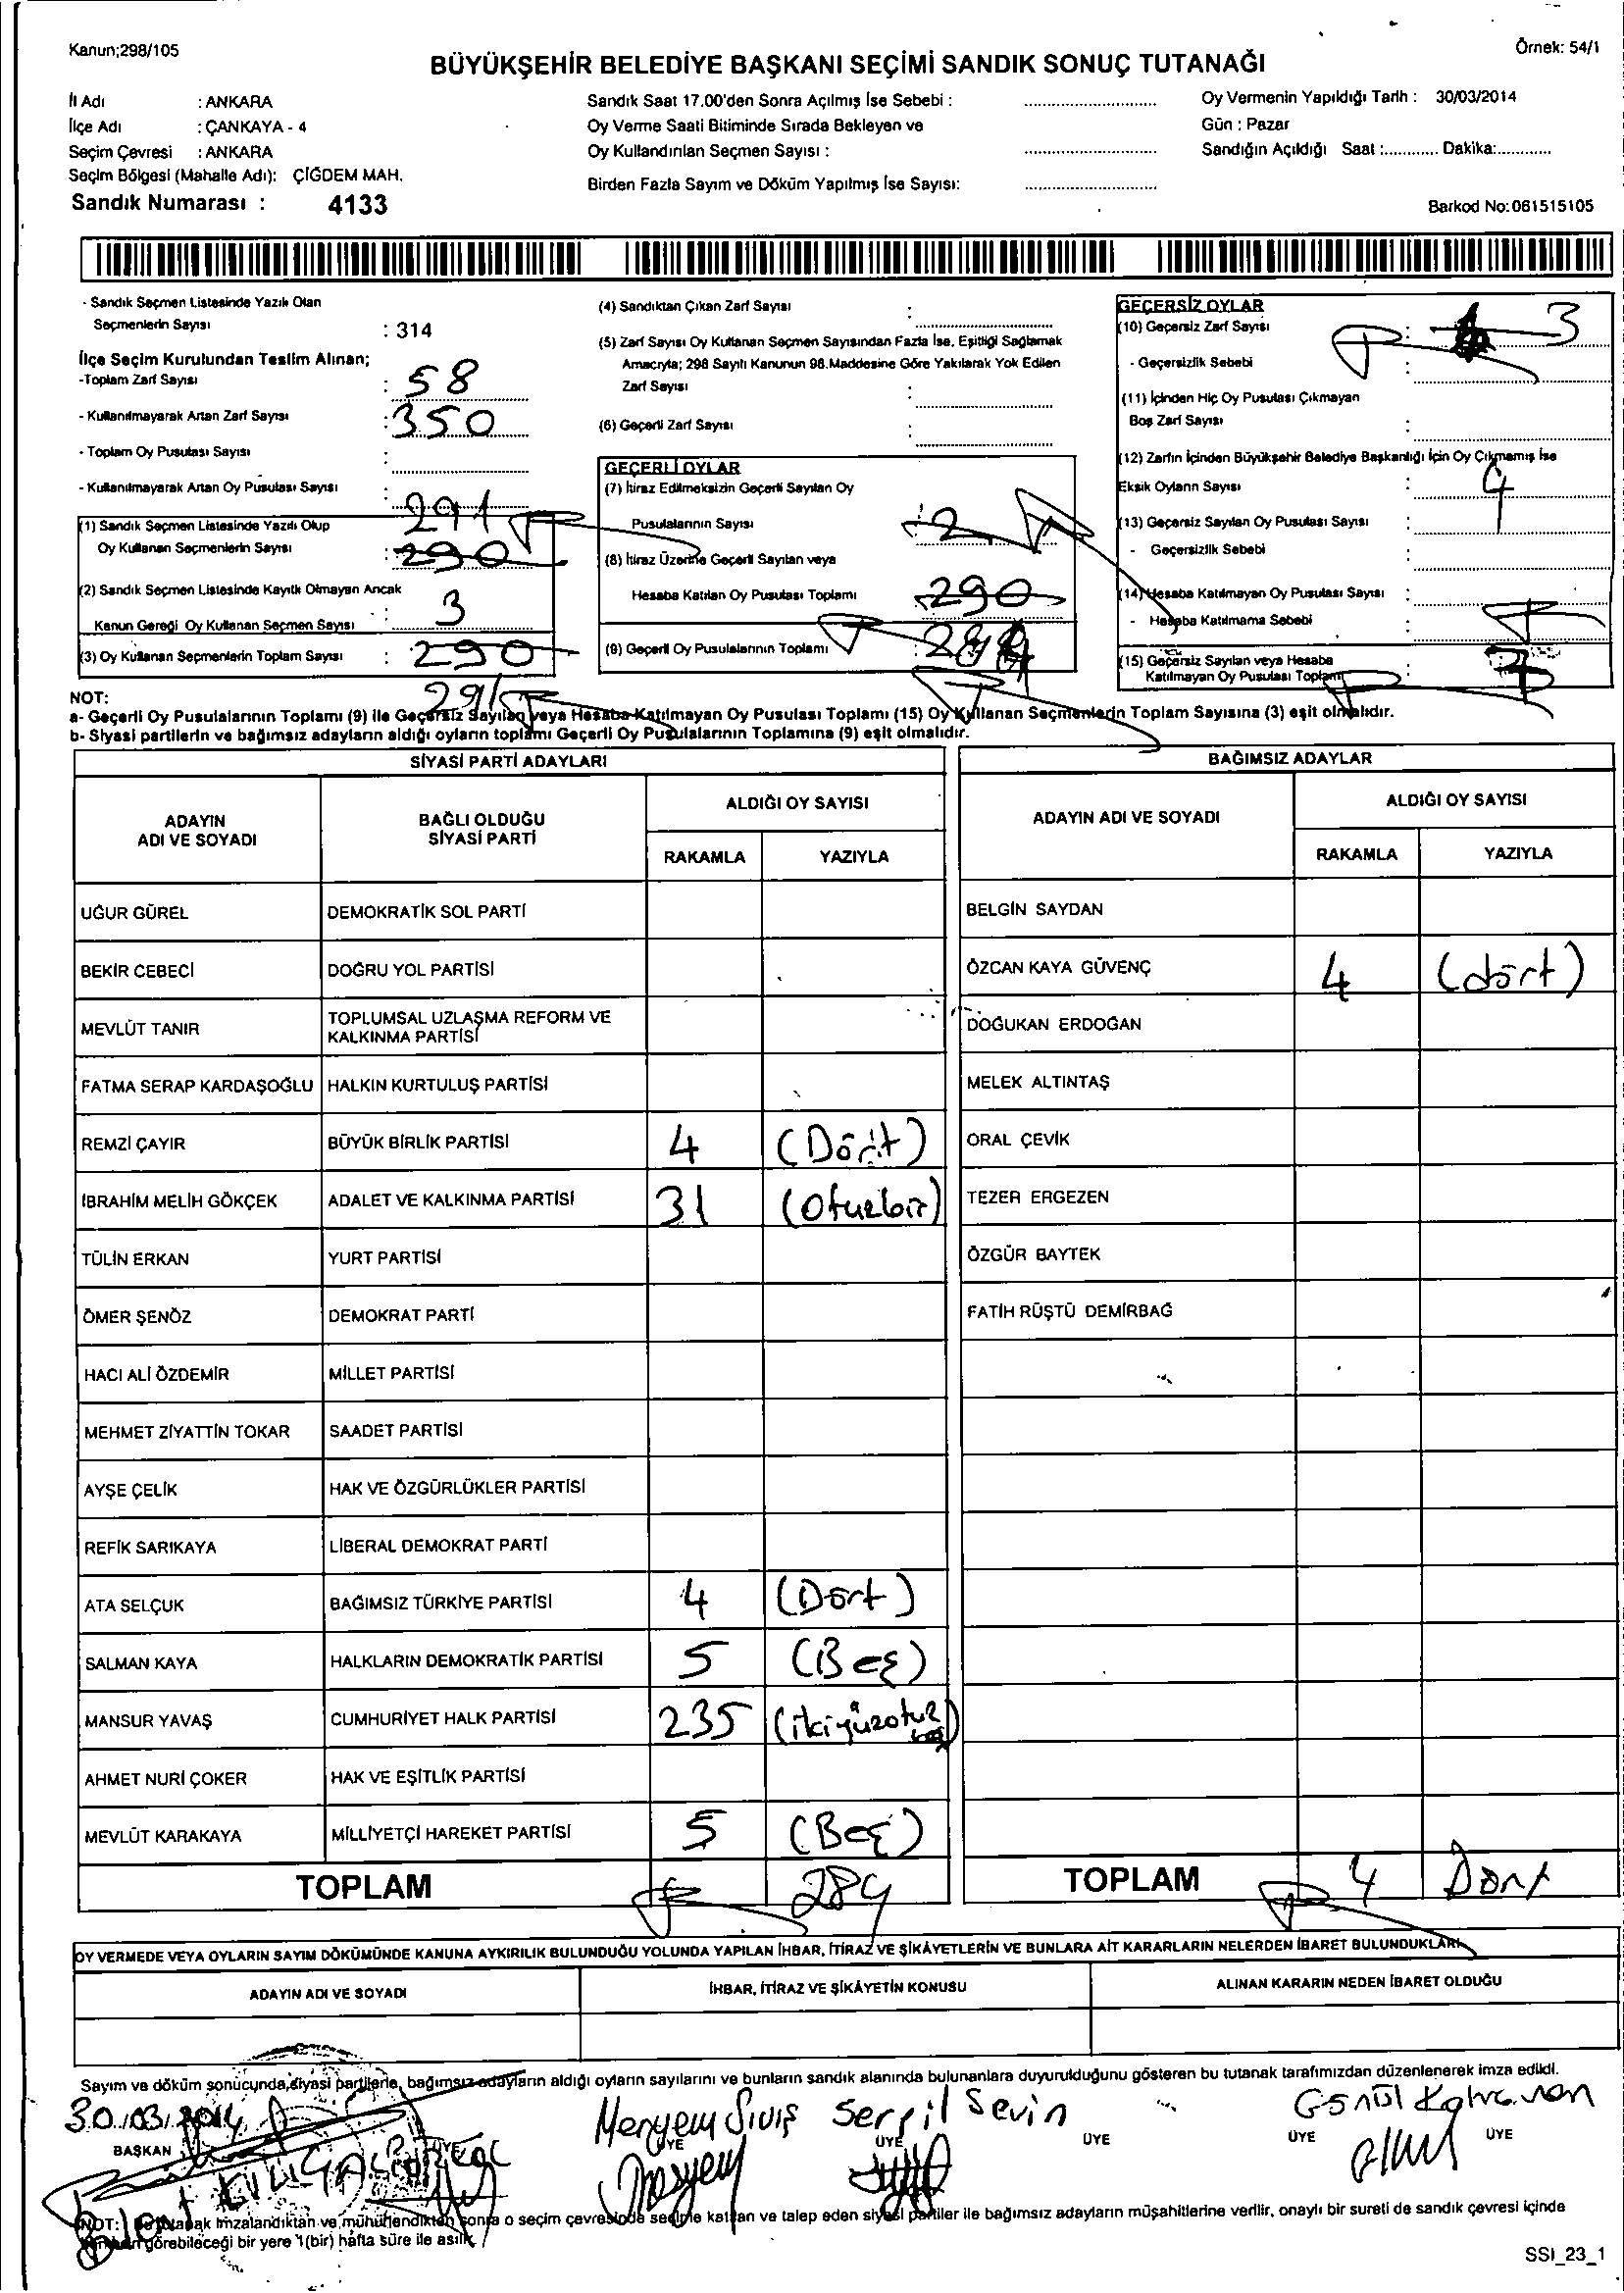 Kanun;298/105
Örnek: 54/1
BÜYÜKŞEHİR BELEDİYE BAŞKANI SEÇİMİ SANDIK SONUÇ TUTANAĞI
İl Adı : ANKARA
İlçe Adı : ÇANKAYA - 4
Seçim Çevresi : ANKARA
Seçim Bölgesi (Mahalle Adı): ÇİĞDEM MAH.
Sandık Numarası : 4133
Sandık Saat 17.00'den Sonra Açılmış İse Sebebi :
Oy Verme Saati Bitiminde Sırada Bekleyen ve
Oy Kullandırılan Seçmen Sayısı :
Birden Fazla Sayım ve Döküm Yapılmış İse Sayısı:
Oy Vermenin Yapıldığı Tarih : 30/03/2014
Gün : Pazar
Sandığın Açıldığı Saat :............ Dakika:............
Barkod No:061515105
- Sandık Seçmen Listesinde Yazılı Olan
Seçmenlerin Sayısı : 314
İlçe Seçim Kurulundan Teslim Alınan;
-Toplam Zarf Sayısı : 58
- Kullanılmayarak Artan Zarf Sayısı : 350
- Toplam Oy Pusulası Sayısı :
- Kullanılmayarak Artan Oy Pusulası Sayısı :
(1) Sandık Seçmen Listesinde Yazılı Olup 291
Oy Kullanan Seçmenlerin Sayısı : 290
(2) Sandık Seçmen Listesinde Kayıtlı Olmayan Ancak
Kanun Gereği Oy Kullanan Seçmen Sayısı : 3
(3) Oy Kullanan Seçmenlerin Toplam Sayısı : 290
291
(4) Sandıktan Çıkan Zarf Sayısı :
(5) Zarf Sayısı Oy Kullanan Seçmen Sayısından Fazla İse, Eşitliği Sağlamak
Amacıyla; 298 Sayılı Kanunun 98.Maddesine Göre Yakılarak Yok Edilen
Zarf Sayısı :
(6) Geçerli Zarf Sayısı :
GEÇERLİ OYLAR
(7) İtiraz Edilmeksizin Geçerli Sayılan Oy
Pusulalarının Sayısı 2
(8) İtiraz Üzerine Geçerli Sayılan veya
Hesaba Katılan Oy Pusulası Toplamı : 290
(9) Geçerli Oy Pusulalarının Toplamı :
GEÇERSİZ OYLAR
(10) Geçersiz Zarf Sayısı : 3
- Geçersizlik Sebebi :
(11) İçinden Hiç Oy Pusulası Çıkmayan
Boş Zarf Sayısı :
(12) Zarfın İçinden Büyükşehir Belediye Başkanlığı İçin Oy Çıkmamış İse
Eksik Oyların Sayısı : 4
(13) Geçersiz Sayılan Oy Pusulası Sayısı :
- Geçersizlik Sebebi
(14) Hesaba Katılmayan Oy Pusulası Sayısı :
- Hesaba Katılmama Sebebi
(15) Geçersiz Sayılan veya Hesaba
Katılmayan Oy Pusulası Toplamı
NOT:
a- Geçerli Oy Pusulalarının Toplamı (9) ile Geçersiz Sayılan veya Hesaba Katılmayan Oy Pusulası Toplamı (15) Oy Kullanan Seçmenlerin Toplam Sayısına (3) eşit olmalıdır.
b- Siyasi partilerin ve bağımsız adayların aldığı oyların toplamı Geçerli Oy Pusulalarının Toplamına (9) eşit olmalıdır.
SİYASİ PARTİ ADAYLARI
ADAYIN ADI VE SOYADI
BAĞLI OLDUĞU SİYASİ PARTİ
ALDIĞI OY SAYISI
RAKAMLA YAZIYLA
UĞUR GÜREL DEMOKRATİK SOL PARTİ
BEKİR CEBECİ DOĞRU YOL PARTİSİ
MEVLÜT TANIR TOPLUMSAL UZLAŞMA REFORM VE
KALKINMA PARTİSİ
FATMA SERAP KARDAŞOĞLU HALKIN KURTULUŞ PARTİSİ
REMZİ ÇAYIR BÜYÜK BİRLİK PARTİSİ 4 (Dört)
İBRAHİM MELİH GÖKÇEK ADALET VE KALKINMA PARTİSİ 31 (Otuzbir)
TÜLİN ERKAN YURT PARTİSİ
ÖMER ŞENÖZ DEMOKRAT PARTİ
HACI ALİ ÖZDEMİR MİLLET PARTİSİ
MEHMET ZİYATTİN TOKAR SAADET PARTİSİ
AYŞE ÇELİK HAK VE ÖZGÜRLÜKLER PARTİSİ
REFİK SARIKAYA LİBERAL DEMOKRAT PARTİ
ATA SELÇUK BAĞIMSIZ TÜRKİYE PARTİSİ 4 (Dört)
SALMAN KAYA HALKLARIN DEMOKRATİK PARTİSİ 5 (Beş)
MANSUR YAVAŞ CUMHURİYET HALK PARTİSİ 235 (ikiyüzotuz
beş)
AHMET NURİ ÇOKER HAK VE EŞİTLİK PARTİSİ
MEVLÜT KARAKAYA MİLLİYETÇİ HAREKET PARTİSİ 5 (Beş)
TOPLAM 284
BAĞIMSIZ ADAYLAR
ADAYIN ADI VE SOYADI
ALDIĞI OY SAYISI
RAKAMLA YAZIYLA
BELGİN SAYDAN
ÖZCAN KAYA GÜVENÇ 4 (dört)
DOĞUKAN ERDOĞAN
MELEK ALTINTAŞ
ORAL ÇEVİK
TEZER ERGEZEN
ÖZGÜR BAYTEK
FATİH RÜŞTÜ DEMİRBAĞ
TOPLAM 4 Dört
OY VERMEDE VEYA OYLARIN SAYIM DÖKÜMÜNDE KANUNA AYKIRILIK BULUNDUĞU YOLUNDA YAPILAN İHBAR, İTİRAZ VE ŞİKÂYETLERİN VE BUNLARA AİT KARARLARIN NELERDEN İBARET BULUNDUKLARI
ADAYIN ADI VE SOYADI İHBAR, İTİRAZ VE ŞİKÂYETİN KONUSU ALINAN KARARIN NEDEN İBARET OLDUĞU
Sayım ve döküm sonucunda,siyasi partilerle, bağımsız adayların aldığı oyların sayılarını ve bunların sandık alanında bulunanlara duyurulduğunu gösteren bu tutanak tarafımızdan düzenlenerek imza edildi.
30/03/2014 Meryem Siviş Serpil Sevin Gönül Kahraman
BAŞKAN ÜYE ÜYE ÜYE ÜYE ÜYE ÜYE
Bülent Meryem
NOT: Bu tutanak imzalandıktan ve mühürlendikten sonra o seçim çevresinde seçime katılan ve talep eden siyasi partiler ile bağımsız adayların müşahitlerine verilir, onaylı bir sureti de sandık çevresi içinde
görebileceği bir yere 1(bir) hafta süre ile asılır.
SSI_23_1